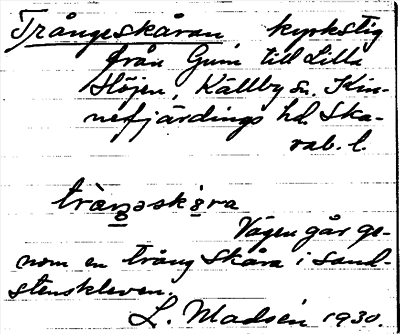 Trångeskåran kyrkstig
från Gum till Lilla
Höjen, Källby sn. Kin-
nefjärdings hd. Ska-
rab. l.
Vägen går ge-
nom en trång skåra i sand-
stenskleven.
L. Madsén 1930.